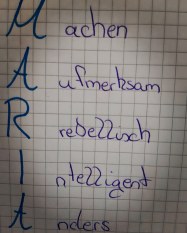 Machen
Aufmerksam
Rrebellisch
Intelligent
Anders